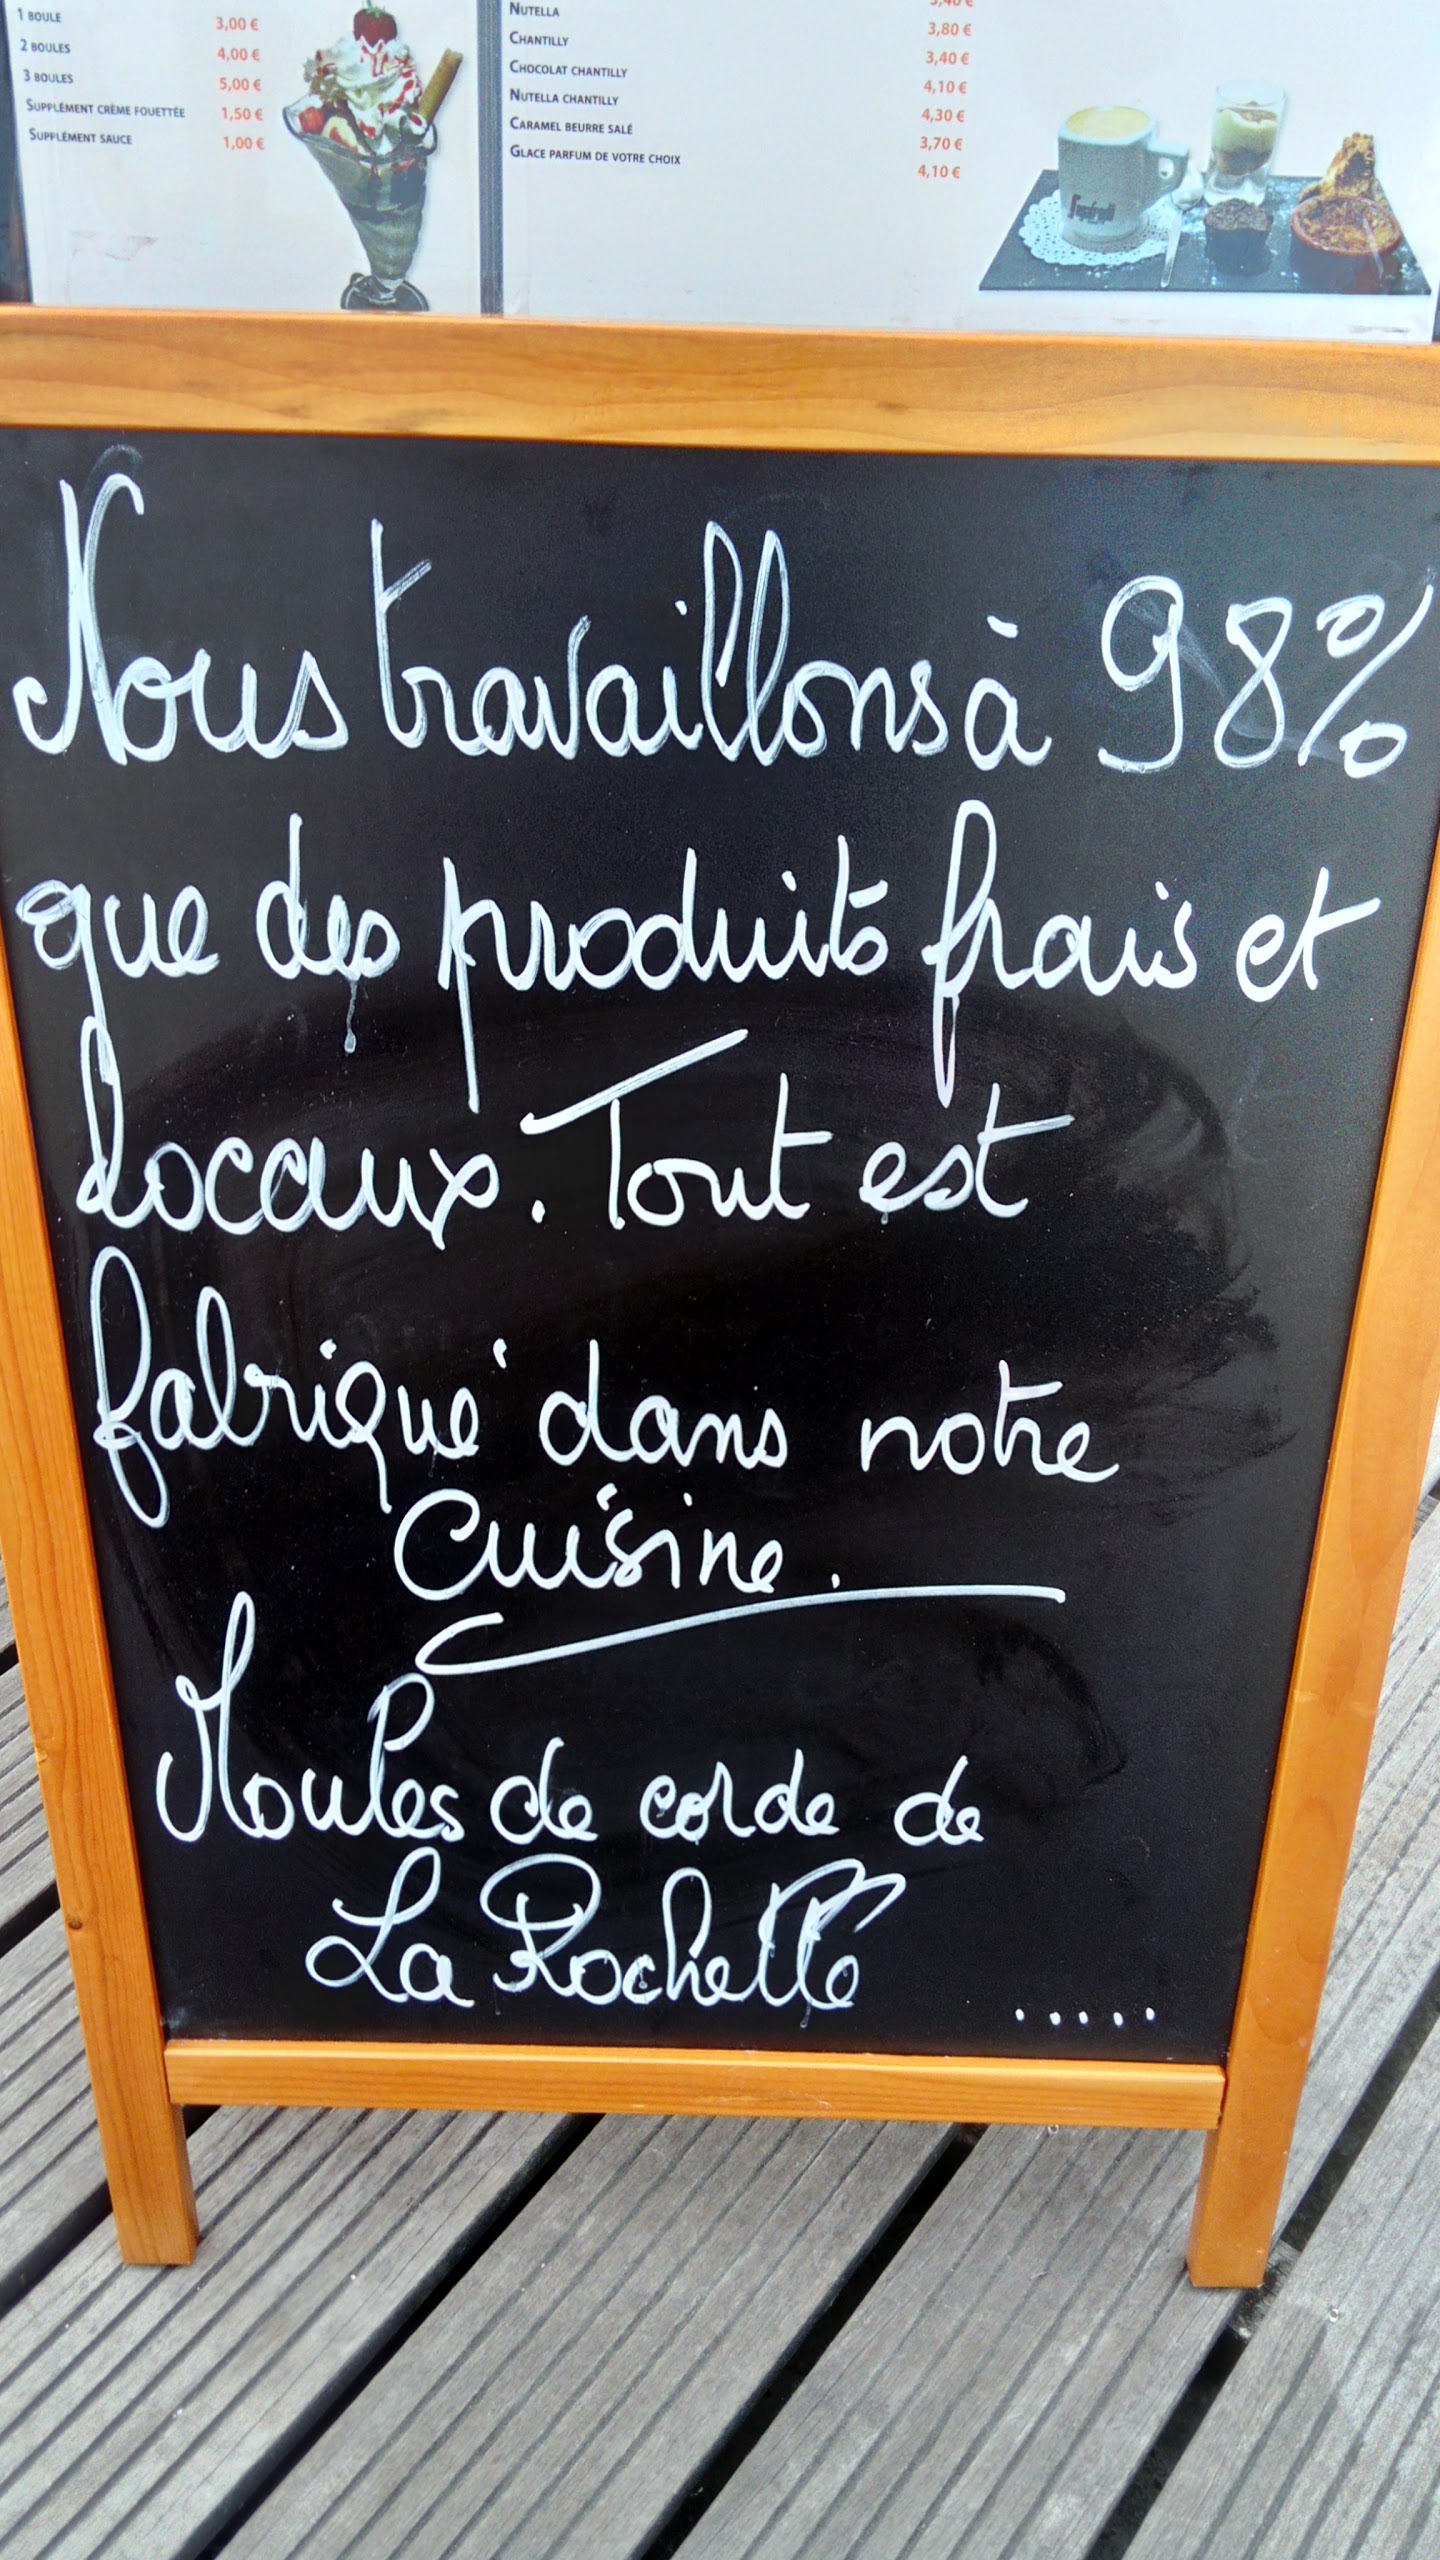 1 BOULE 3,00 €
2 BOULES 4,00 €
3 BOULES 5,00 €
SUPPLÉMENT CRÈME FOUETTÉE 1,50 €
SUPPLÉMENT SAUCE 1,00 €
NUTELLA 3,80 €
CHANTILLY 3,40 €
CHOCOLAT CHANTILLY 4,10 €
NUTELLA CHANTILLY 4,30 €
CARAMEL BEURRE SALÉ 3,70 €
GLACE PARFUM DE VOTRE CHOIX 4,10 €
Nous travaillons à 98%
que des produits frais et
locaux. Tout est
fabriqué dans notre
Cuisine.
Moules de corde de
La Rochelle .....